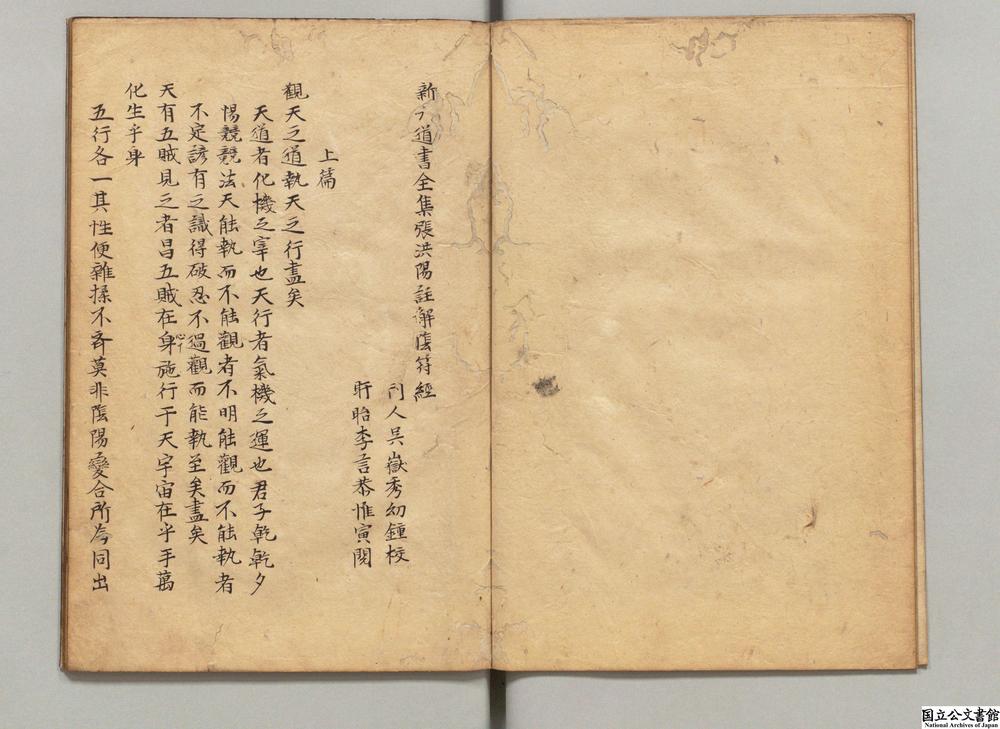 新刊道書全集張洪陽註解陰符經
刊人吳嶽秀幻鍾校
盱眙李言恭惟寅閱
上篇
觀天之道執天之行盡矣
天道者化機之宰也天行者氣機之運也君子乾乾夕
惕兢兢法天能執而不能觀者不明能觀而不能執者
不定諺有之識得破忍不過觀而能執至矣盡矣
天有五賊見之者昌五賊在身施行于天宇宙在乎手萬
心
化生乎身
五行各一其性便雜揉不齊莫非陰陽變合所為同出
国立公文書館
National Archives of Japan